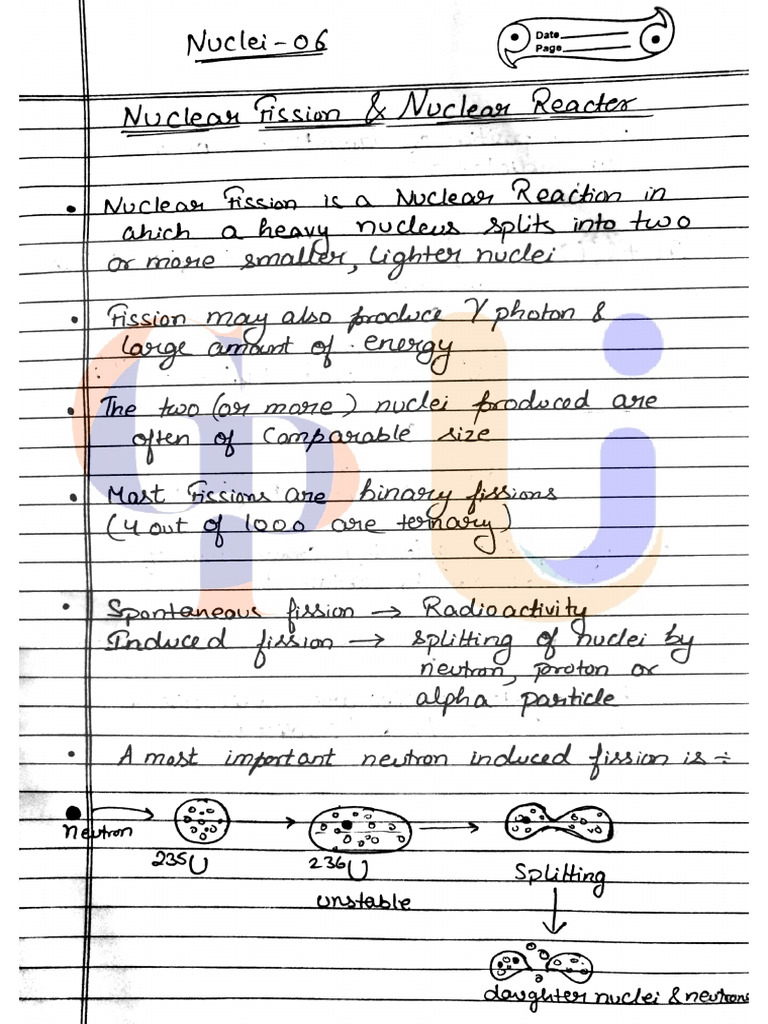 Nuclei-06
Date
Page
Nuclear Fission & Nuclear Reacter
• Nuclear Fission is a Nuclear Reaction in
which a heavy nucleus splits into two
or more smaller, lighter nuclei
• Fission may also produce γ photon &
large amount of energy
• The two (or more) nuclei produced are
often of Comparable size
• Most Fissions are binary fissions
(4 out of 1000 are ternary)
• Spontaneous fission → Radioactivity
Induced fission → splitting of nuclei by
neutron, proton or
alpha particle
• A most important neutron induced fission is ÷
neutron
235U
236U
unstable
Splitting
daughter nuclei & neutrons